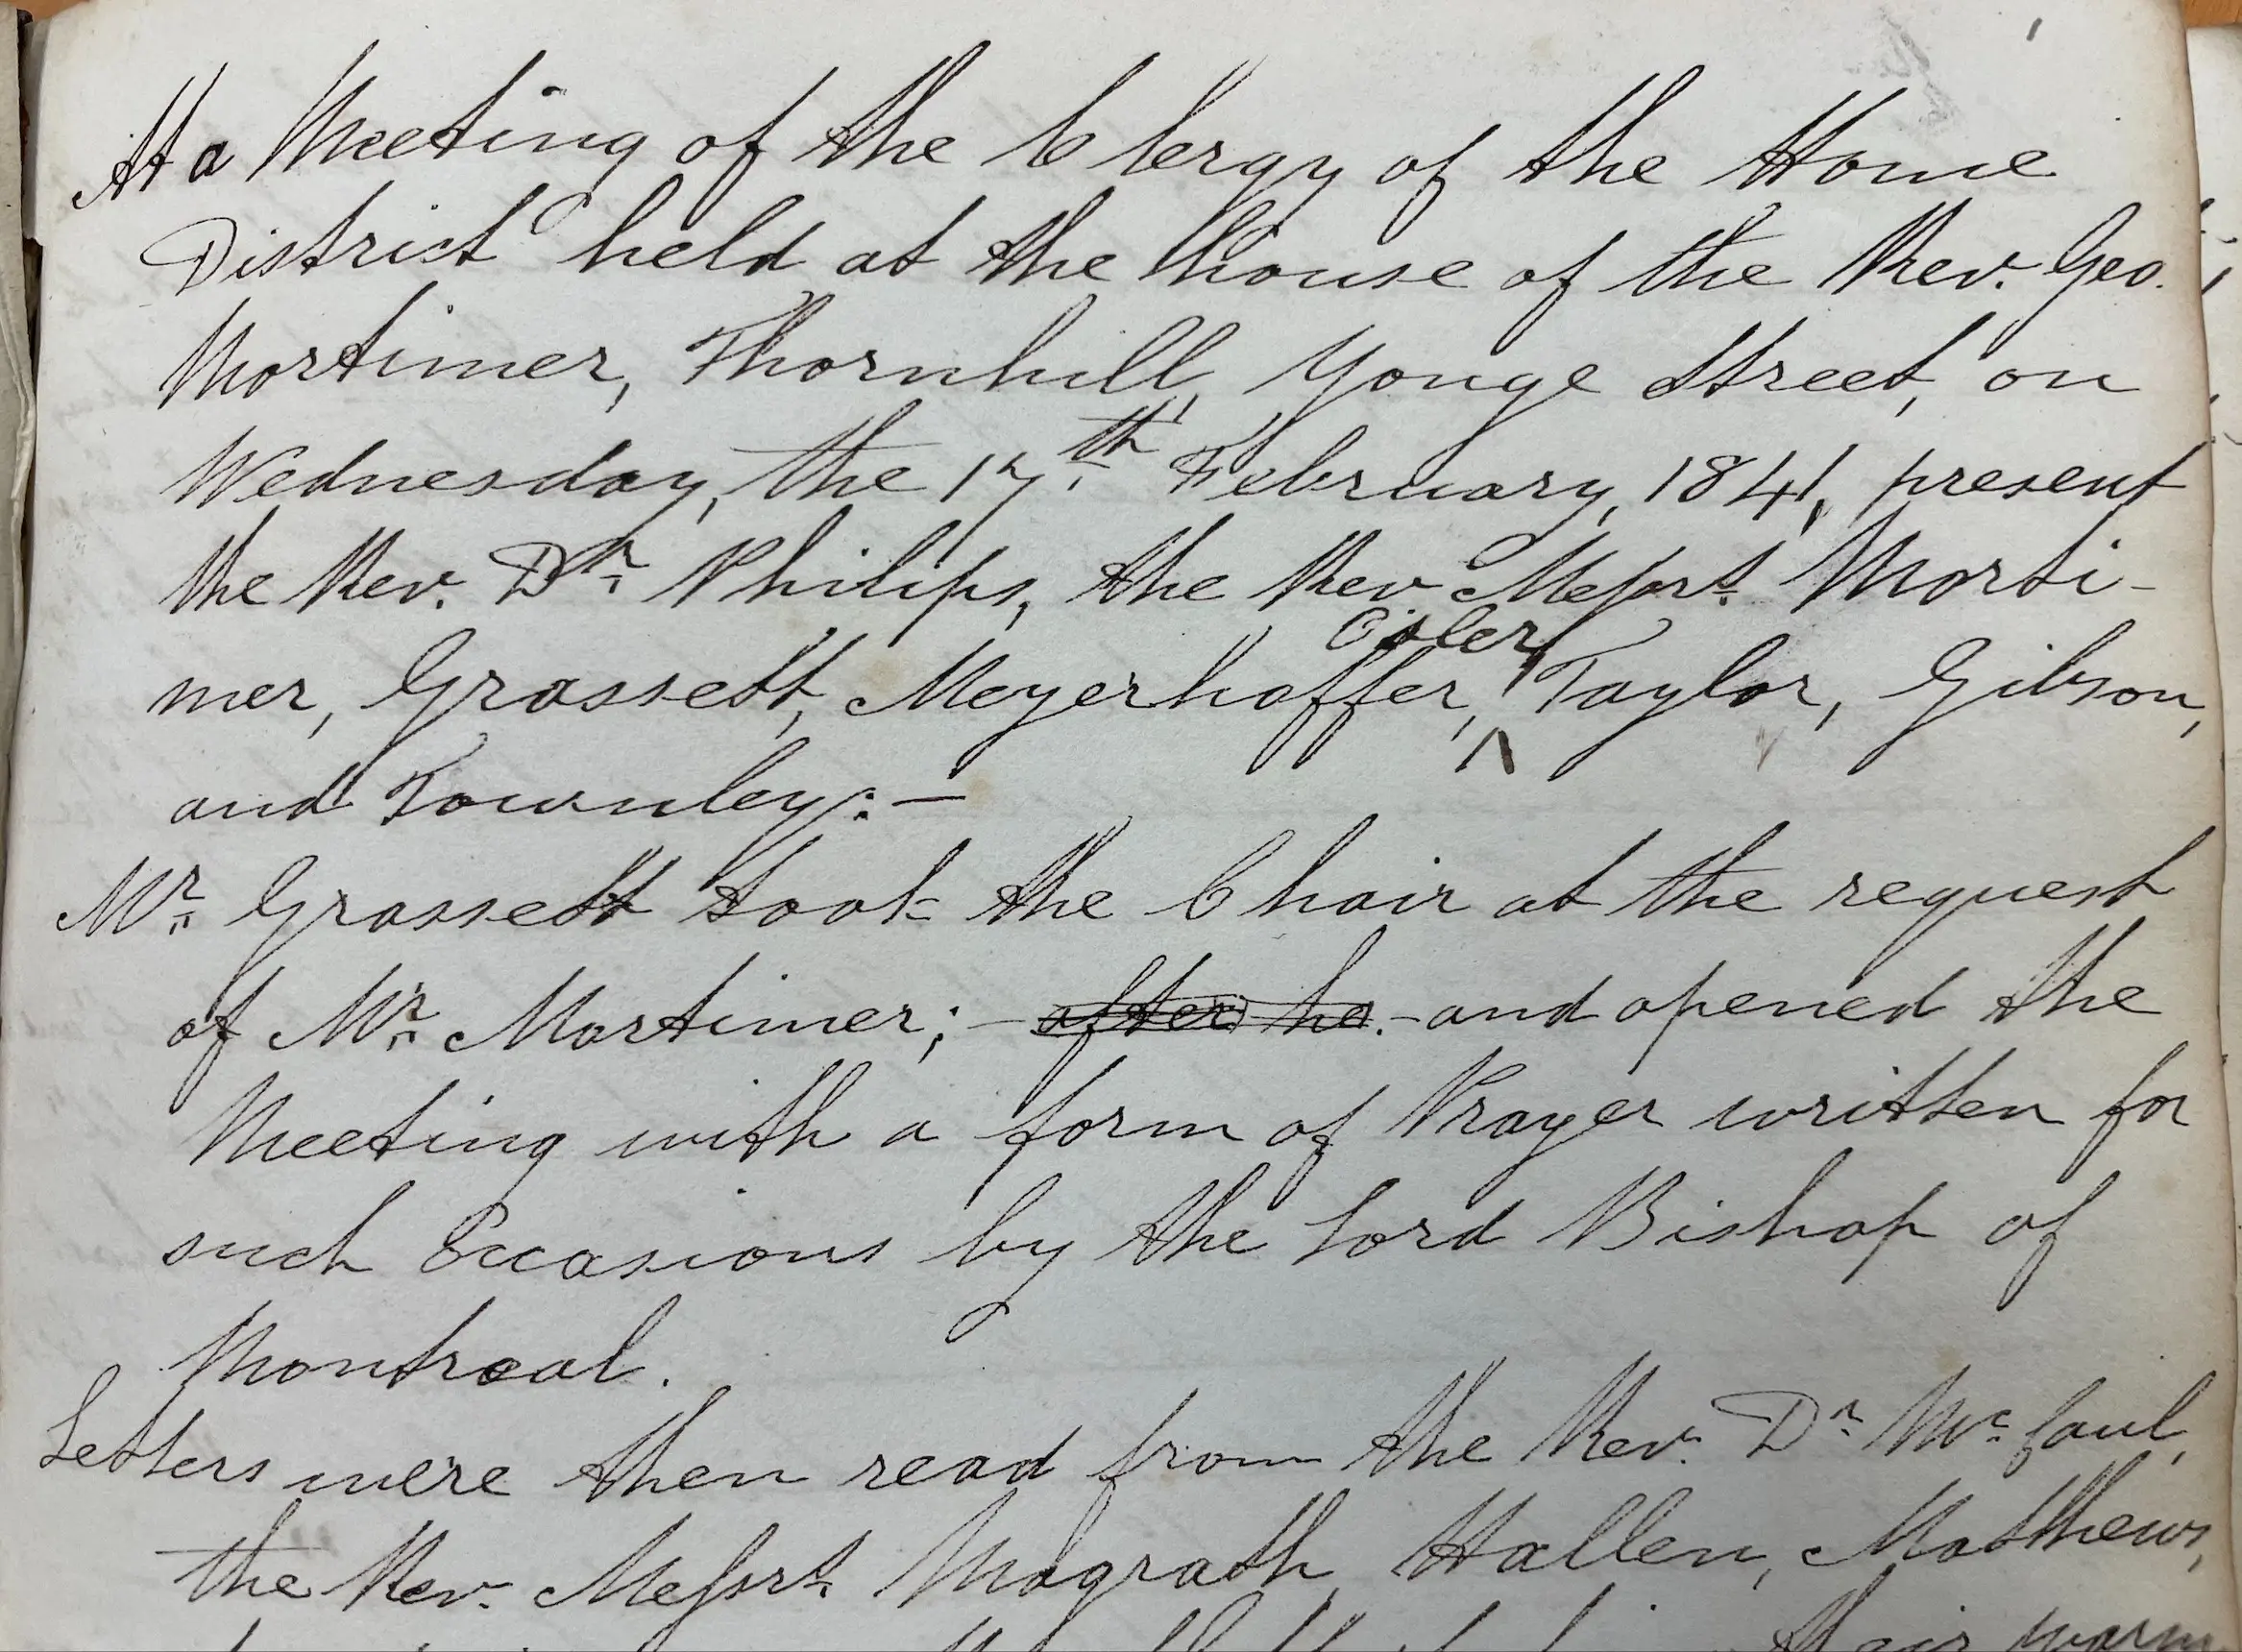 At a Meeting of the Clergy of the Home
District held at the house of the Rev. Geo.
Mortimer, Thornhill, Yonge Street, on
Wednesday, the 17th. February, 1841, present
the Rev. Dr. Philips, the Rev. Messrs. Morti-
mer, Grassett, Meyerhoffer, Osler, Taylor, Gibson,
and Townley:—
Mr. Grassett took the Chair at the request
of Mr. Mortimer; – after he. – and opened the
Meeting with a form of Prayer written for
such Occasions by the Lord Bishop of
Montreal.
Letters were then read from the Rev. Dr. McCaul,
the Rev. Messrs. Magrath, Hallen, Matthews,
their warm